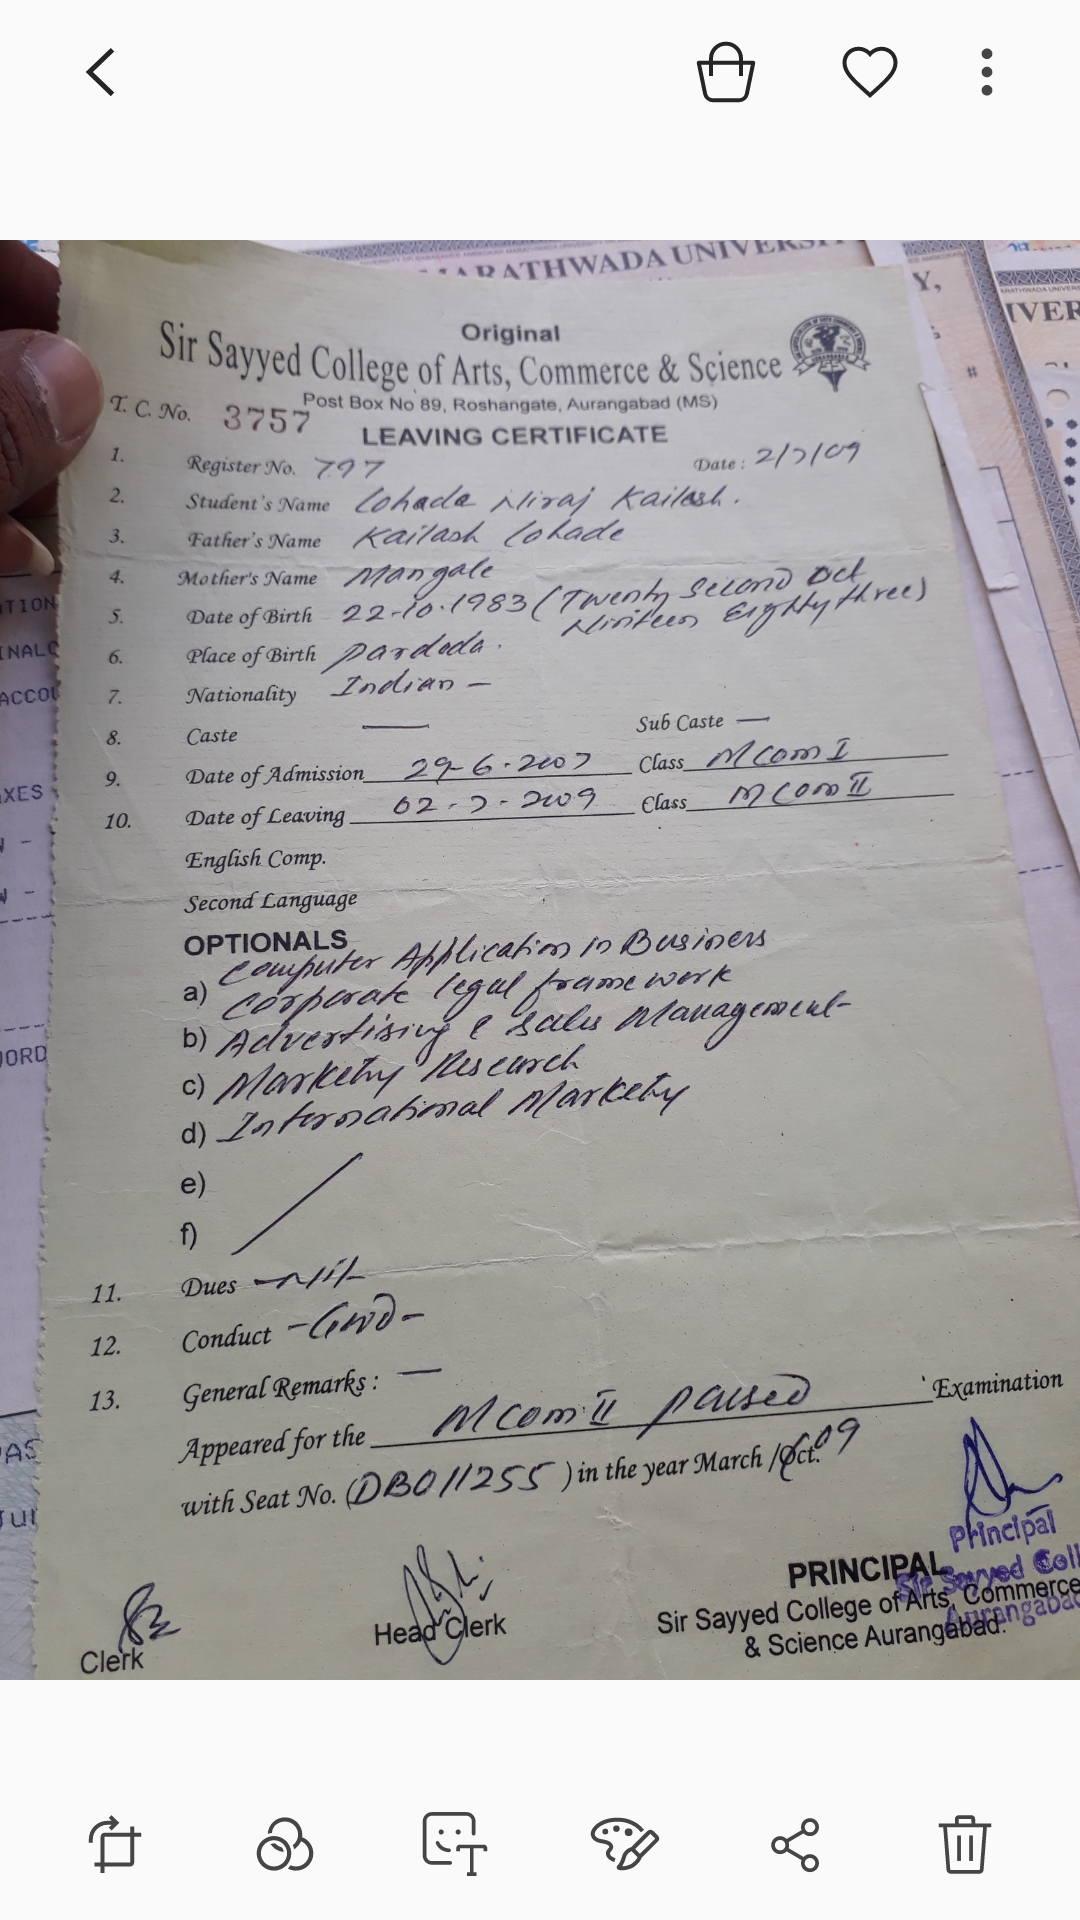 MARATHWADA UNIVERSI
Y,
IVER
Original
Sir Sayyed College of Arts, Commerce & Science
Post Box No 89, Roshangate, Aurangabad (MS)
T. C. No. 3757
LEAVING CERTIFICATE
1. Register No. 797 Date : 2/7/09
2. Student's Name Lohade Niraj Kailash.
3. Father's Name Kailash Lohade
4. Mother's Name Mangale
5. Date of Birth 22-10-1983 (Twenty Second Oct
Niniteen Eighty three)
6. Place of Birth Pardoda.
7. Nationality Indian –
8. Caste — Sub Caste —
9. Date of Admission 29-6-2007 Class M Com I
10. Date of Leaving 02-7-2009 Class M Com II
English Comp.
Second Language
OPTIONALS
Computer Application in Business
a) Corporate legal frame work
b) Advertising & Sales Management
c) Markethy Research
d) International Markethy
e)
f)
11. Dues – Nil –
12. Conduct – Good –
13. General Remarks : —
Appeared for the M Com II passed Examination
with Seat No. (DB011255) in the year March /Oct. 09
Principal
PRINCIPAL
Sir Sayyed Coll
Sir Sayyed College of Arts, Commerce
Aurangabad
& Science Aurangabad.
Head Clerk
Clerk
TION
INALC
ACCOU
XES
W -
W -
WORD
PAS
Jul